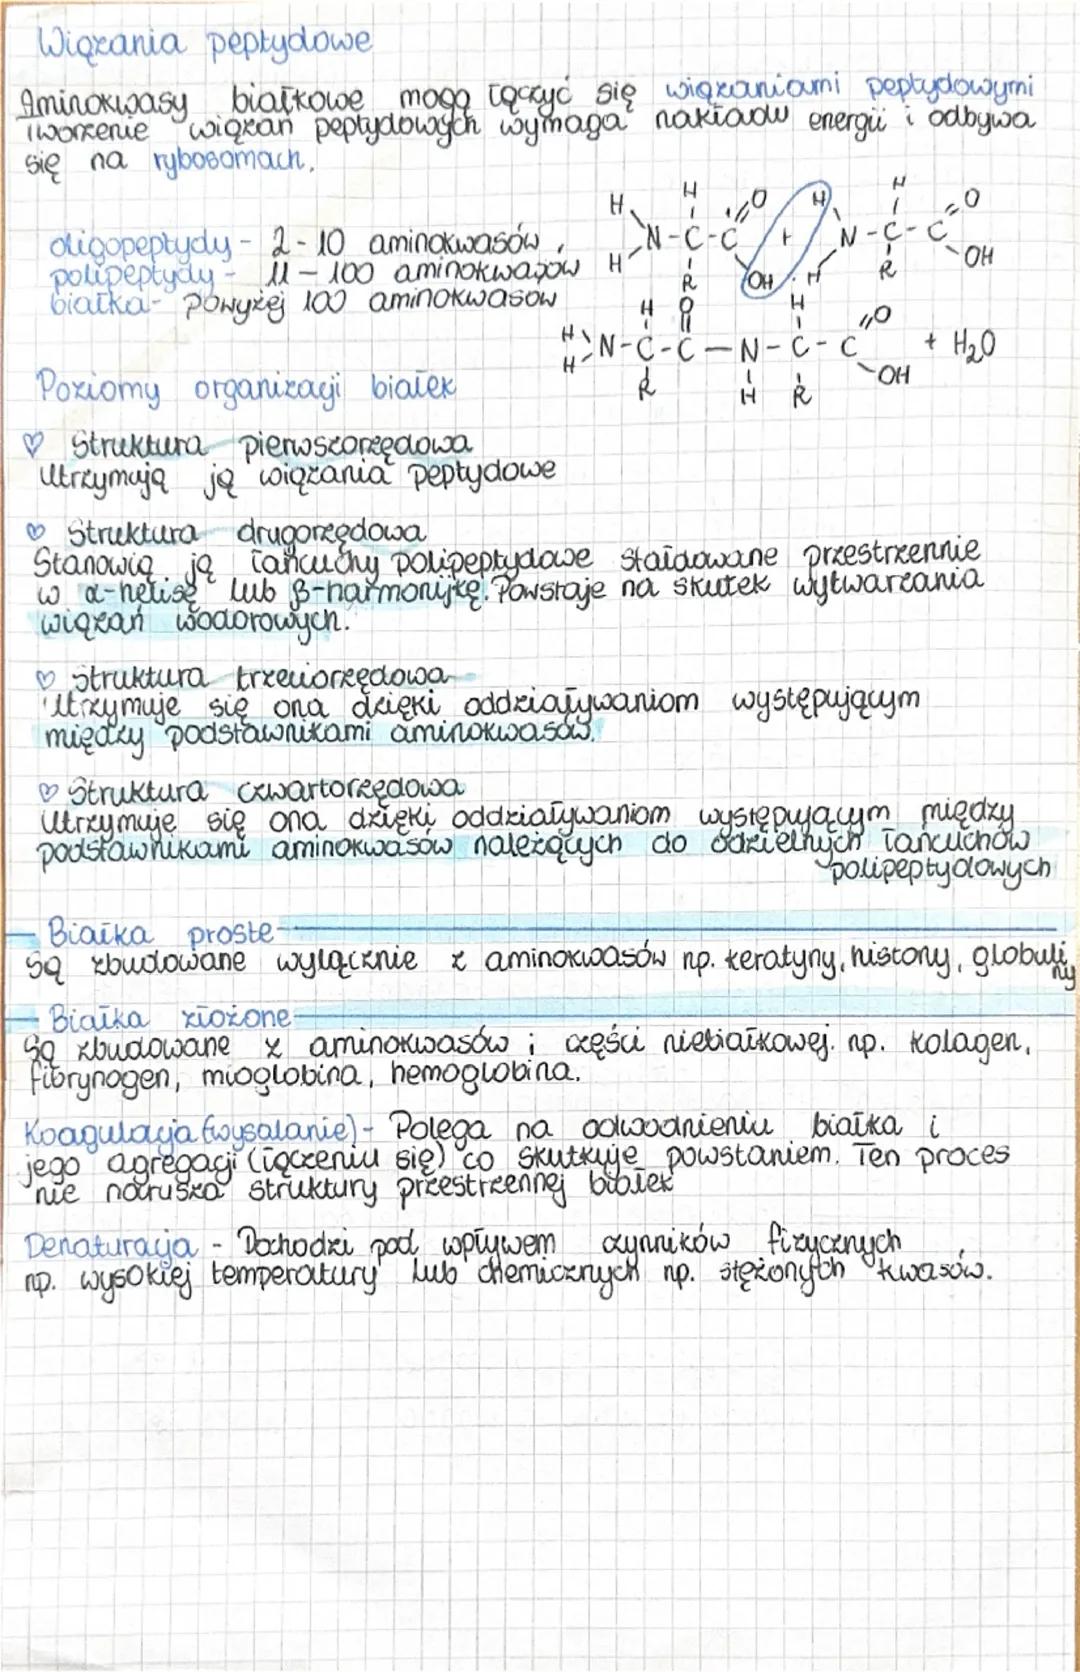 Wiązania peptydowe
Aminokwasy białkowe mogą łączyć się wiązaniami peptydowymi
Tworzenie wiązań peptydowych wymaga nakładu energii i odbywa
się na rybosomach.
oligopeptydy - 2-10 aminokwasów,
polipeptydy - 11-100 aminokwasów
białka - powyżej 100 aminokwasów
H H O H H O
N-C-C + N-C-C
H R OH H R OH
H O H O
H N-C-C-N-C-C + H₂O
H R H R OH
Poziomy organizacji białek
♡ Struktura pierwszorzędowa
Utrzymują ją wiązania peptydowe
♡ Struktura drugorzędowa
Stanowią ją łańcuchy polipeptydowe sfałdowane przestrzennie
w α-helisę lub β-harmonijkę. Powstaje na skutek wytwarzania
wiązań wodorowych.
♡ Struktura trzeciorzędowa
Utrzymuje się ona dzięki oddziaływaniom występującym
między podstawnikami aminokwasów.
♡ Struktura czwartorzędowa
Utrzymuje się ona dzięki oddziaływaniom występującym między
podstawnikami aminokwasów należących do odzielnych łańcuchów
polipeptydowych
Białka proste
Są zbudowane wyłącznie z aminokwasów np. keratyny, histony, globuli
ny
Białka złożone
Są zbudowane z aminokwasów i części niebiałkowej. np. kolagen,
fibrynogen, mioglobina, hemoglobina.
Koagulacja (wysalanie) - Polega na odwodnieniu białka i
jego agregacji (łączeniu się) co skutkuje powstaniem. Ten proces
nie narusza struktury przestrzennej białek
Denaturacja - Dochodzi pod wpływem czynników fizycznych
np. wysokiej temperatury lub chemicznych np. stężonych kwasów.